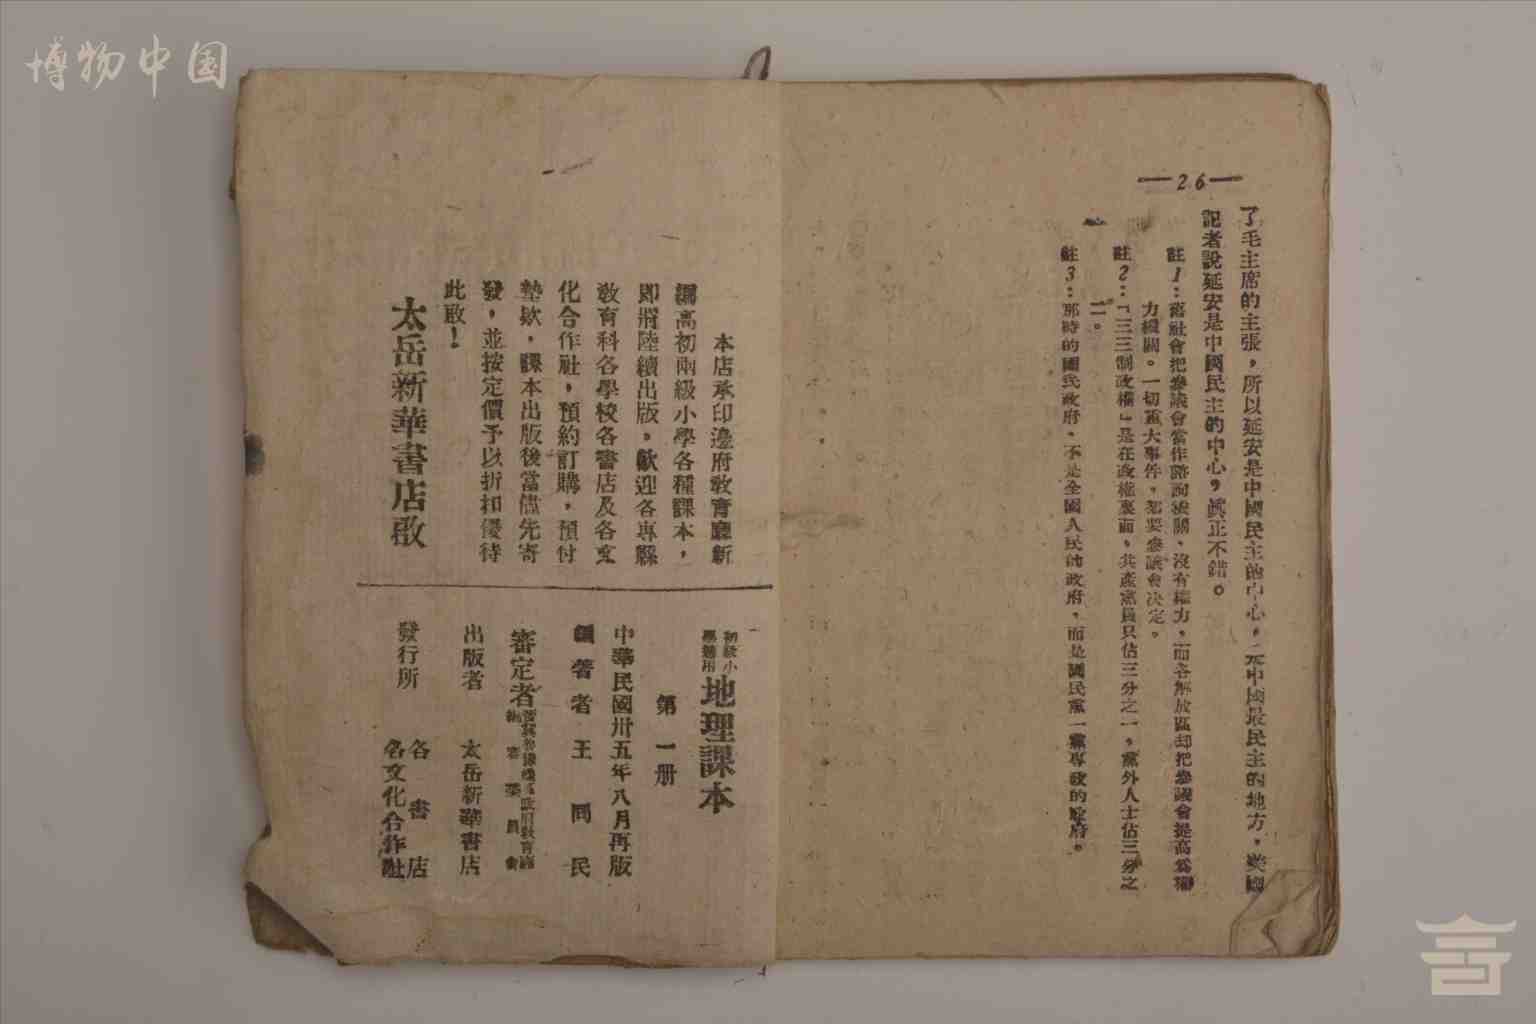 博物中国
—26—
了毛主席的主張，所以延安是中國民主的中心，是中國最民主的地方，美國
記者說延安是中國民主的中心，眞正不錯。
註1：舊社會把參議會當作諮詢機關，沒有權力，而各解放區却把參議會提高爲權
力機關。一切重大事件，都要參議會决定。
註2：「三三制政權」是在政權裏面，共產黨員只佔三分之一，黨外人士佔三分之
二。
註3：那時的國民政府，不是全國人民的政府，而是國民黨一黨專政的政府。
本店承印邊府敎育廳新
編高初兩級小學各種課本，
即將陸續出版。歡迎各專縣
敎育科各學校各書店及各文
化合作社，預約訂購，預付
墊欵，課本出版後當儘先寄
發，並按定價予以折扣優待
此啟！
太岳新華書店啟
初級小
學適用
地理課本
第一册
中華民國卅五年八月再版
編著者 王同民
審定者
晋冀魯豫邊區政府敎育廳
編審委員會
出版者 太岳新華書店
發行所
各書店
各文化合作社